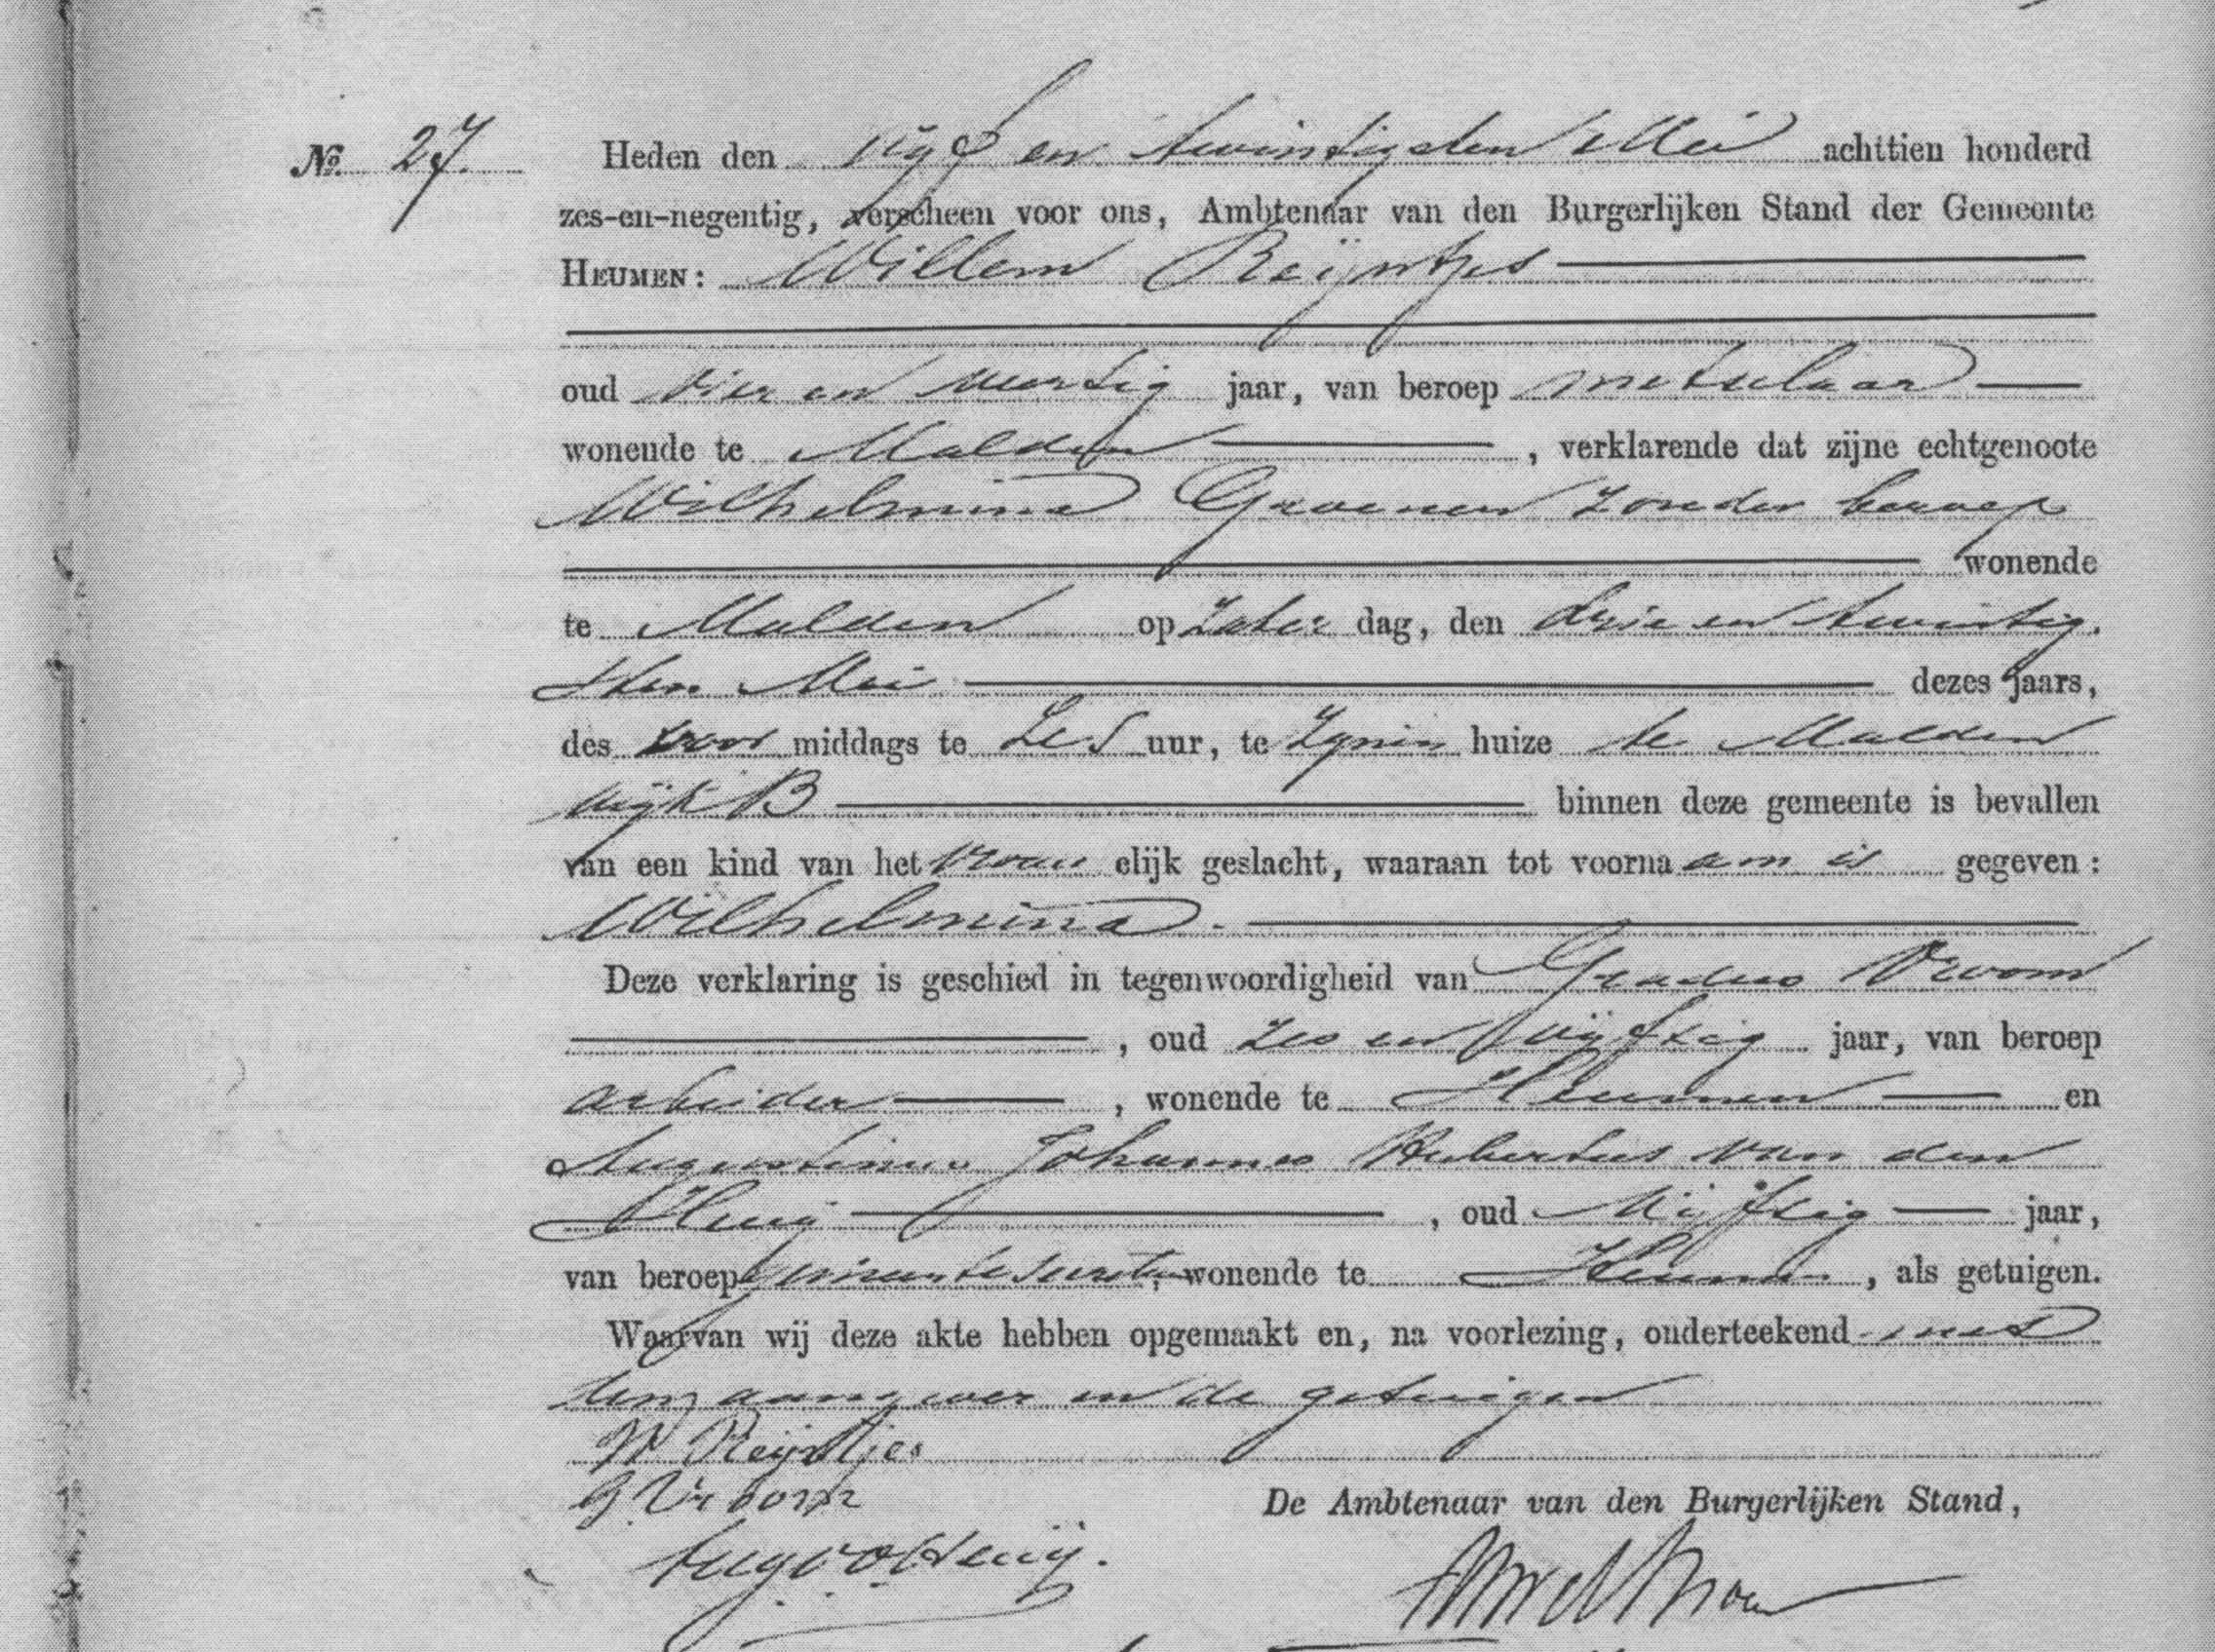 №. 27. Heden den vijf en twintigsten Mei achttien honderd
zes-en-negentig, verscheen voor ons, Ambtenaar van den Burgerlijken Stand der Gemeente
HEUMEN: Willem Reijntjes
oud vier en veertig jaar, van beroep metselaar
wonende te Malden, verklarende dat zijne echtgenoote
Wilhelmina Groenen zonder beroep
wonende
te Malden op Zater dag, den drie en twintig-
sten Mei dezes jaars,
des voor middags te zes uur, te zynen huize te Malden
wijk B binnen deze gemeente is bevallen
van een kind van het vrouw elijk geslacht, waaraan tot voorna am is gegeven:
Wilhelmina.
Deze verklaring is geschied in tegenwoordigheid van Gradus Vroom
, oud zes en vijftig jaar, van beroep
arbeider, wonende te Heumen en
Augustinus Johannes Hubertus van den
Heuij, oud Vijftig jaar,
van beroep Gemeente secretaris, wonende te Heumen, als getuigen.
Waarvan wij deze akte hebben opgemaakt en, na voorlezing, onderteekend met
den aangever en de getuigen
W Reijntjes
G Vroom
De Ambtenaar van den Burgerlijken Stand,